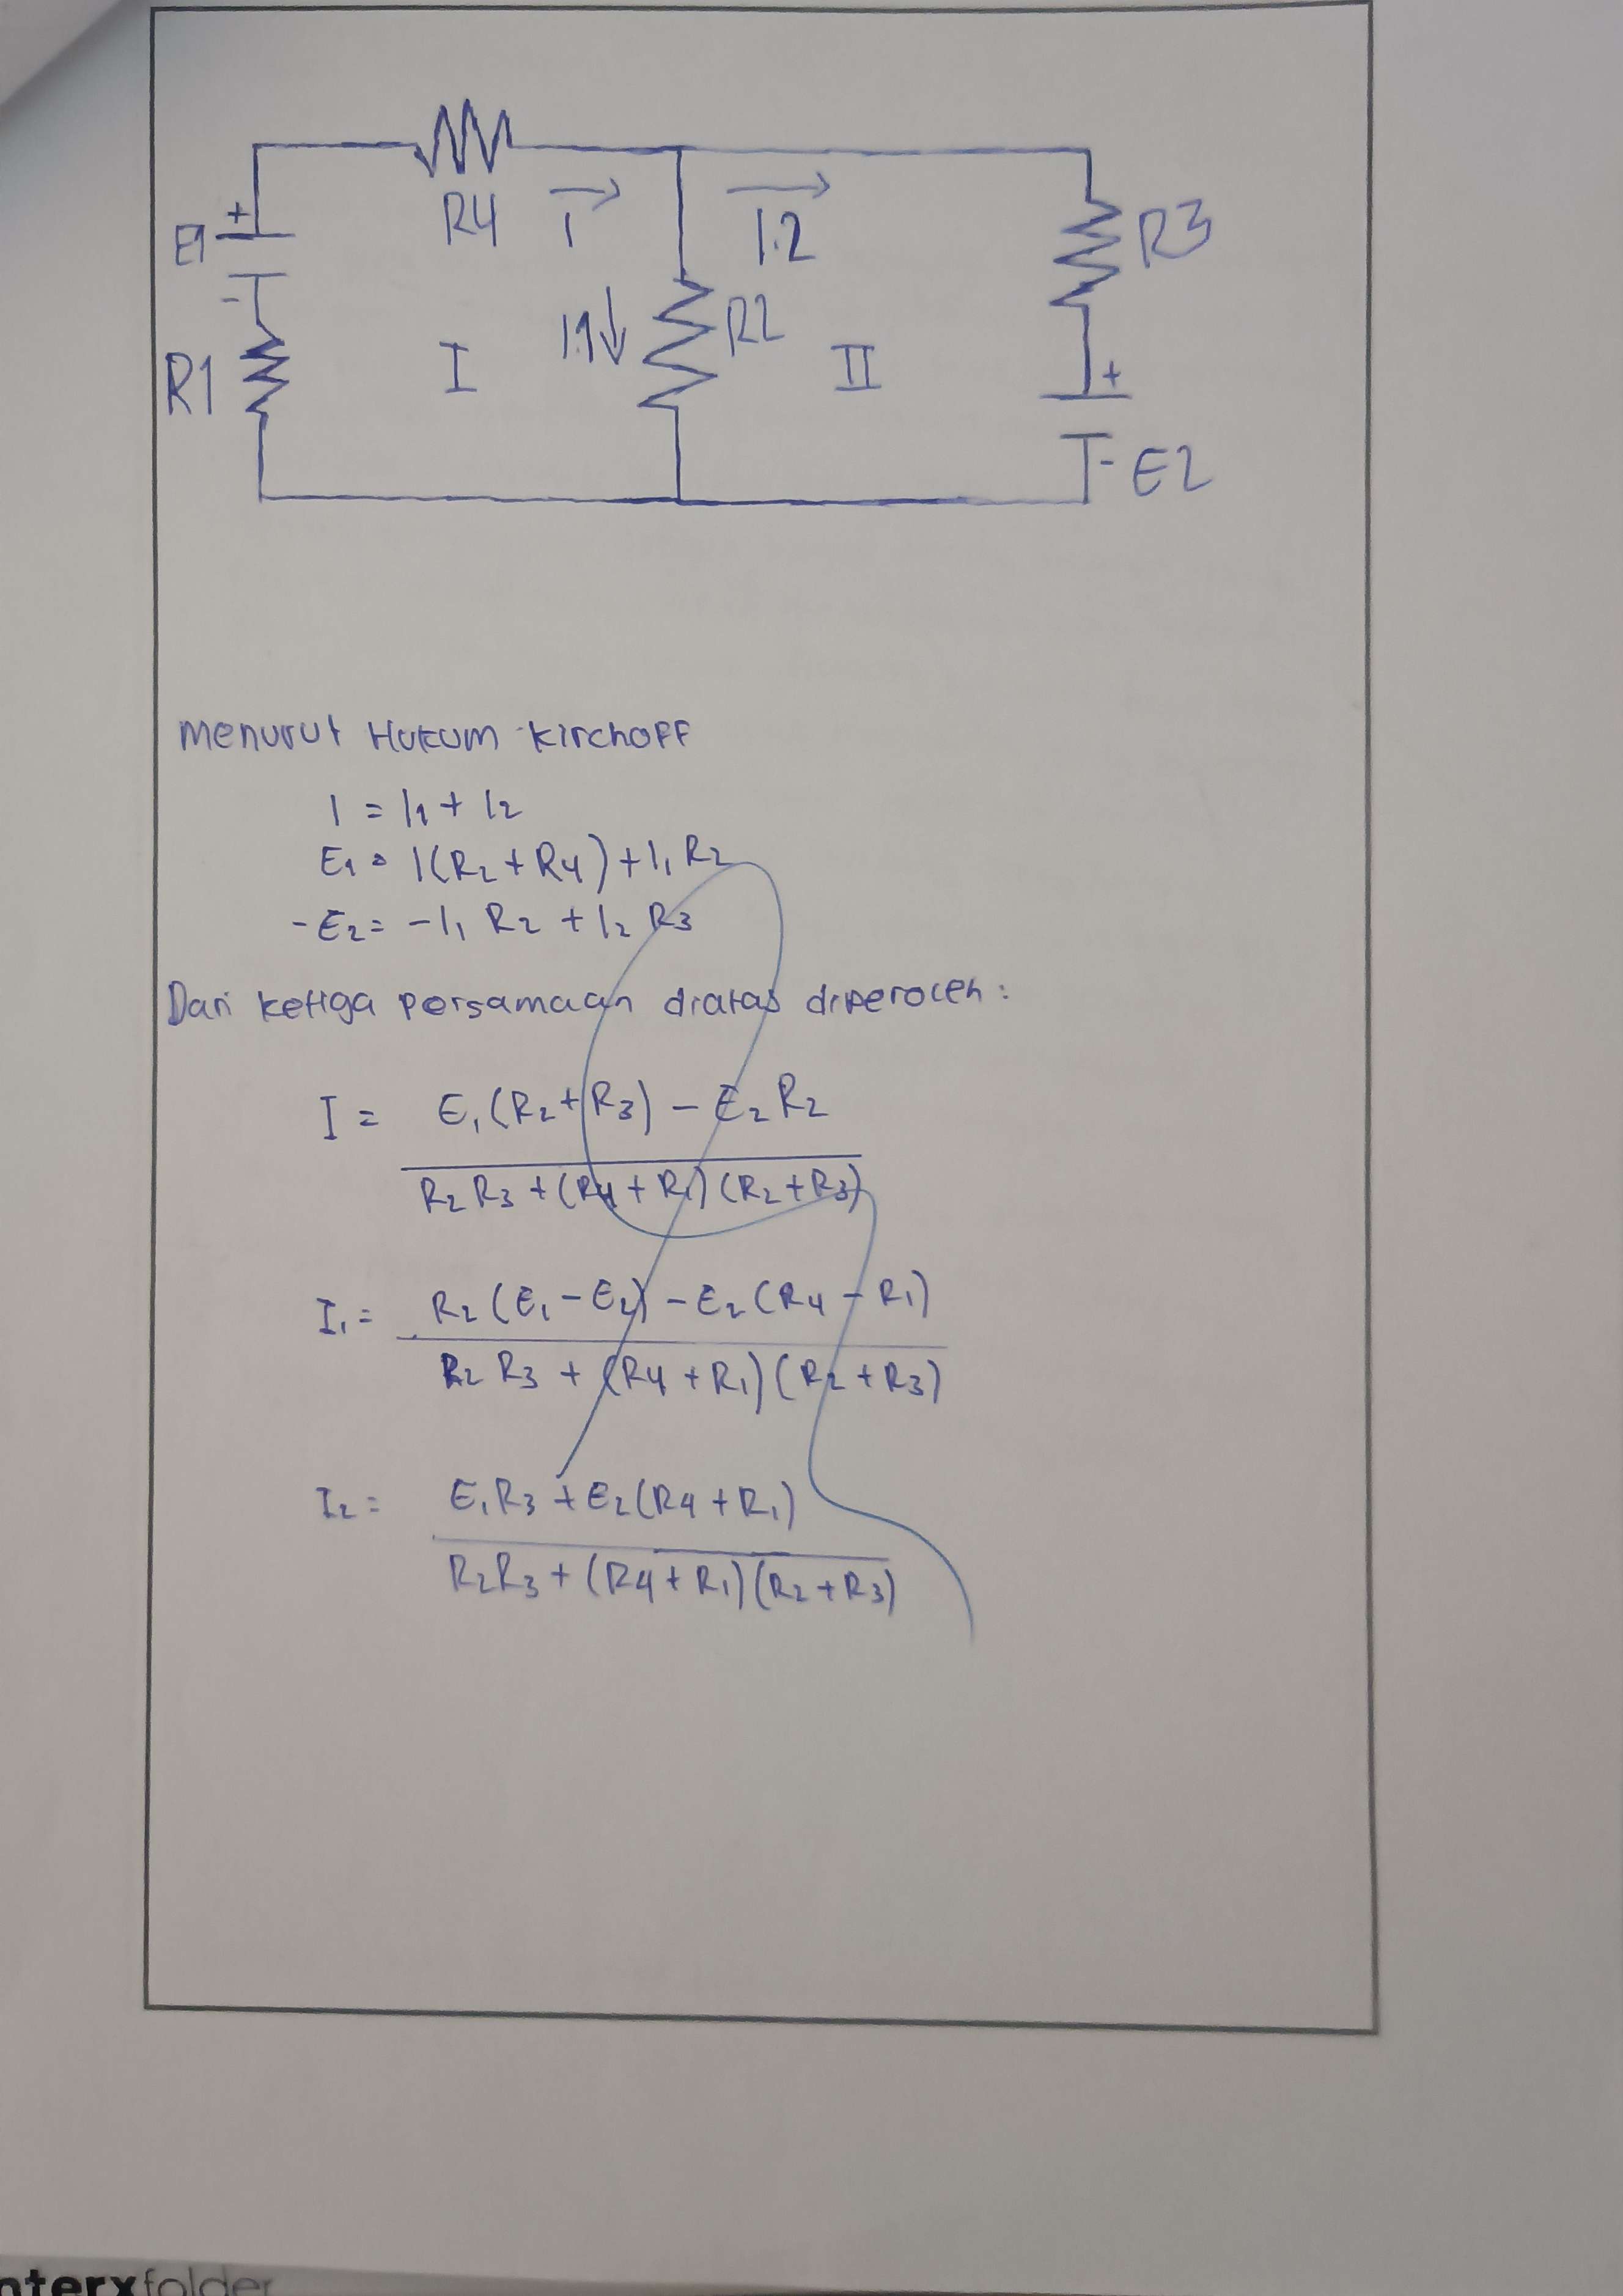 R4 I I.2 R3
E1 + -
R1 I I.1 R2 II
+ - E2
Menurut Hukum Kirchoff
I = I1 + I2
E1 = I(R2 + R4) + I1 R2
-E2 = -I1 R2 + I2 R3
Dari ketiga persamaan diatas diperoleh :
I = E1(R2 + R3) - E2 R2
R2 R3 + (R4 + R1) (R2 + R3)
I1 = R2 (E1 - E2) - E2 (R4 - R1)
R2 R3 + (R4 + R1) (R2 + R3)
I2 = E1R3 + E2(R4 + R1)
R2R3 + (R4 + R1) (R2 + R3)
nterxfolder